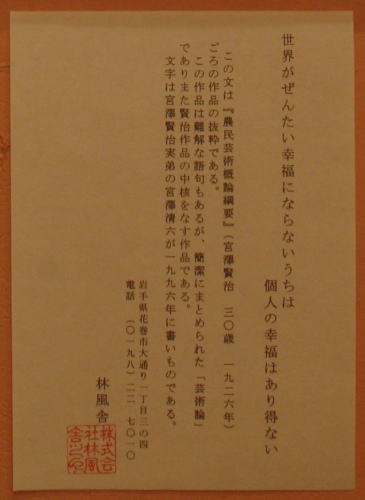 世界がぜんたい幸福にならないうちは
個人の幸福はあり得ない
この文は『農民芸術概論綱要』(宮澤賢治 三〇歳 一九二六年)
ごろの作品の抜粋である。
この作品は難解な語句もあるが、簡潔にまとめられた「芸術論」
でありまた賢治作品の中核をなす作品である。
文字は宮澤賢治実弟の宮澤清六が一九九六年に書いものである。
岩手県花巻市大通り一丁目三の四
電話 (〇一九八)二二 七〇一〇
林風舎
株式会
社林風
舎之印